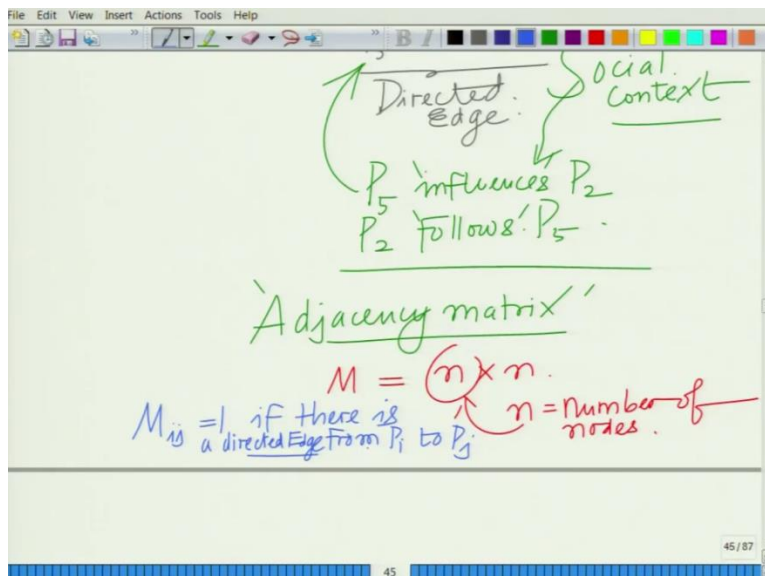 File Edit View Insert Actions Tools Help
B I
Directed
Edge.
Social
context
P5 'influences' P2
P2 'Follows' P5.
'Adjacency matrix'
M = (n) × n.
n = number of
nodes.
Mij = 1 if there is
a directed Edge From Pi to Pj
45/87
45